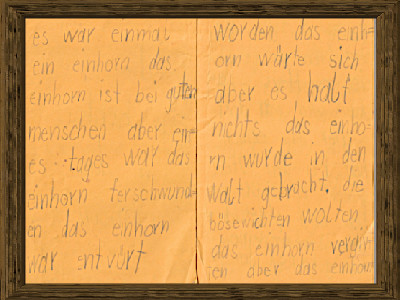 es war einmal
ein einhorn das
einhorn ist bei guten
menschen aber ein=
es tages war das
einhorn ferschwund=
en das einhorn
war entvürt
worden das einh=
orn wärte sich
aber es half
nichts das einho=
rn wurde in den
walt gebracht, die
bösewichten wolten
das einhorn vergif=
ten aber das einhorn